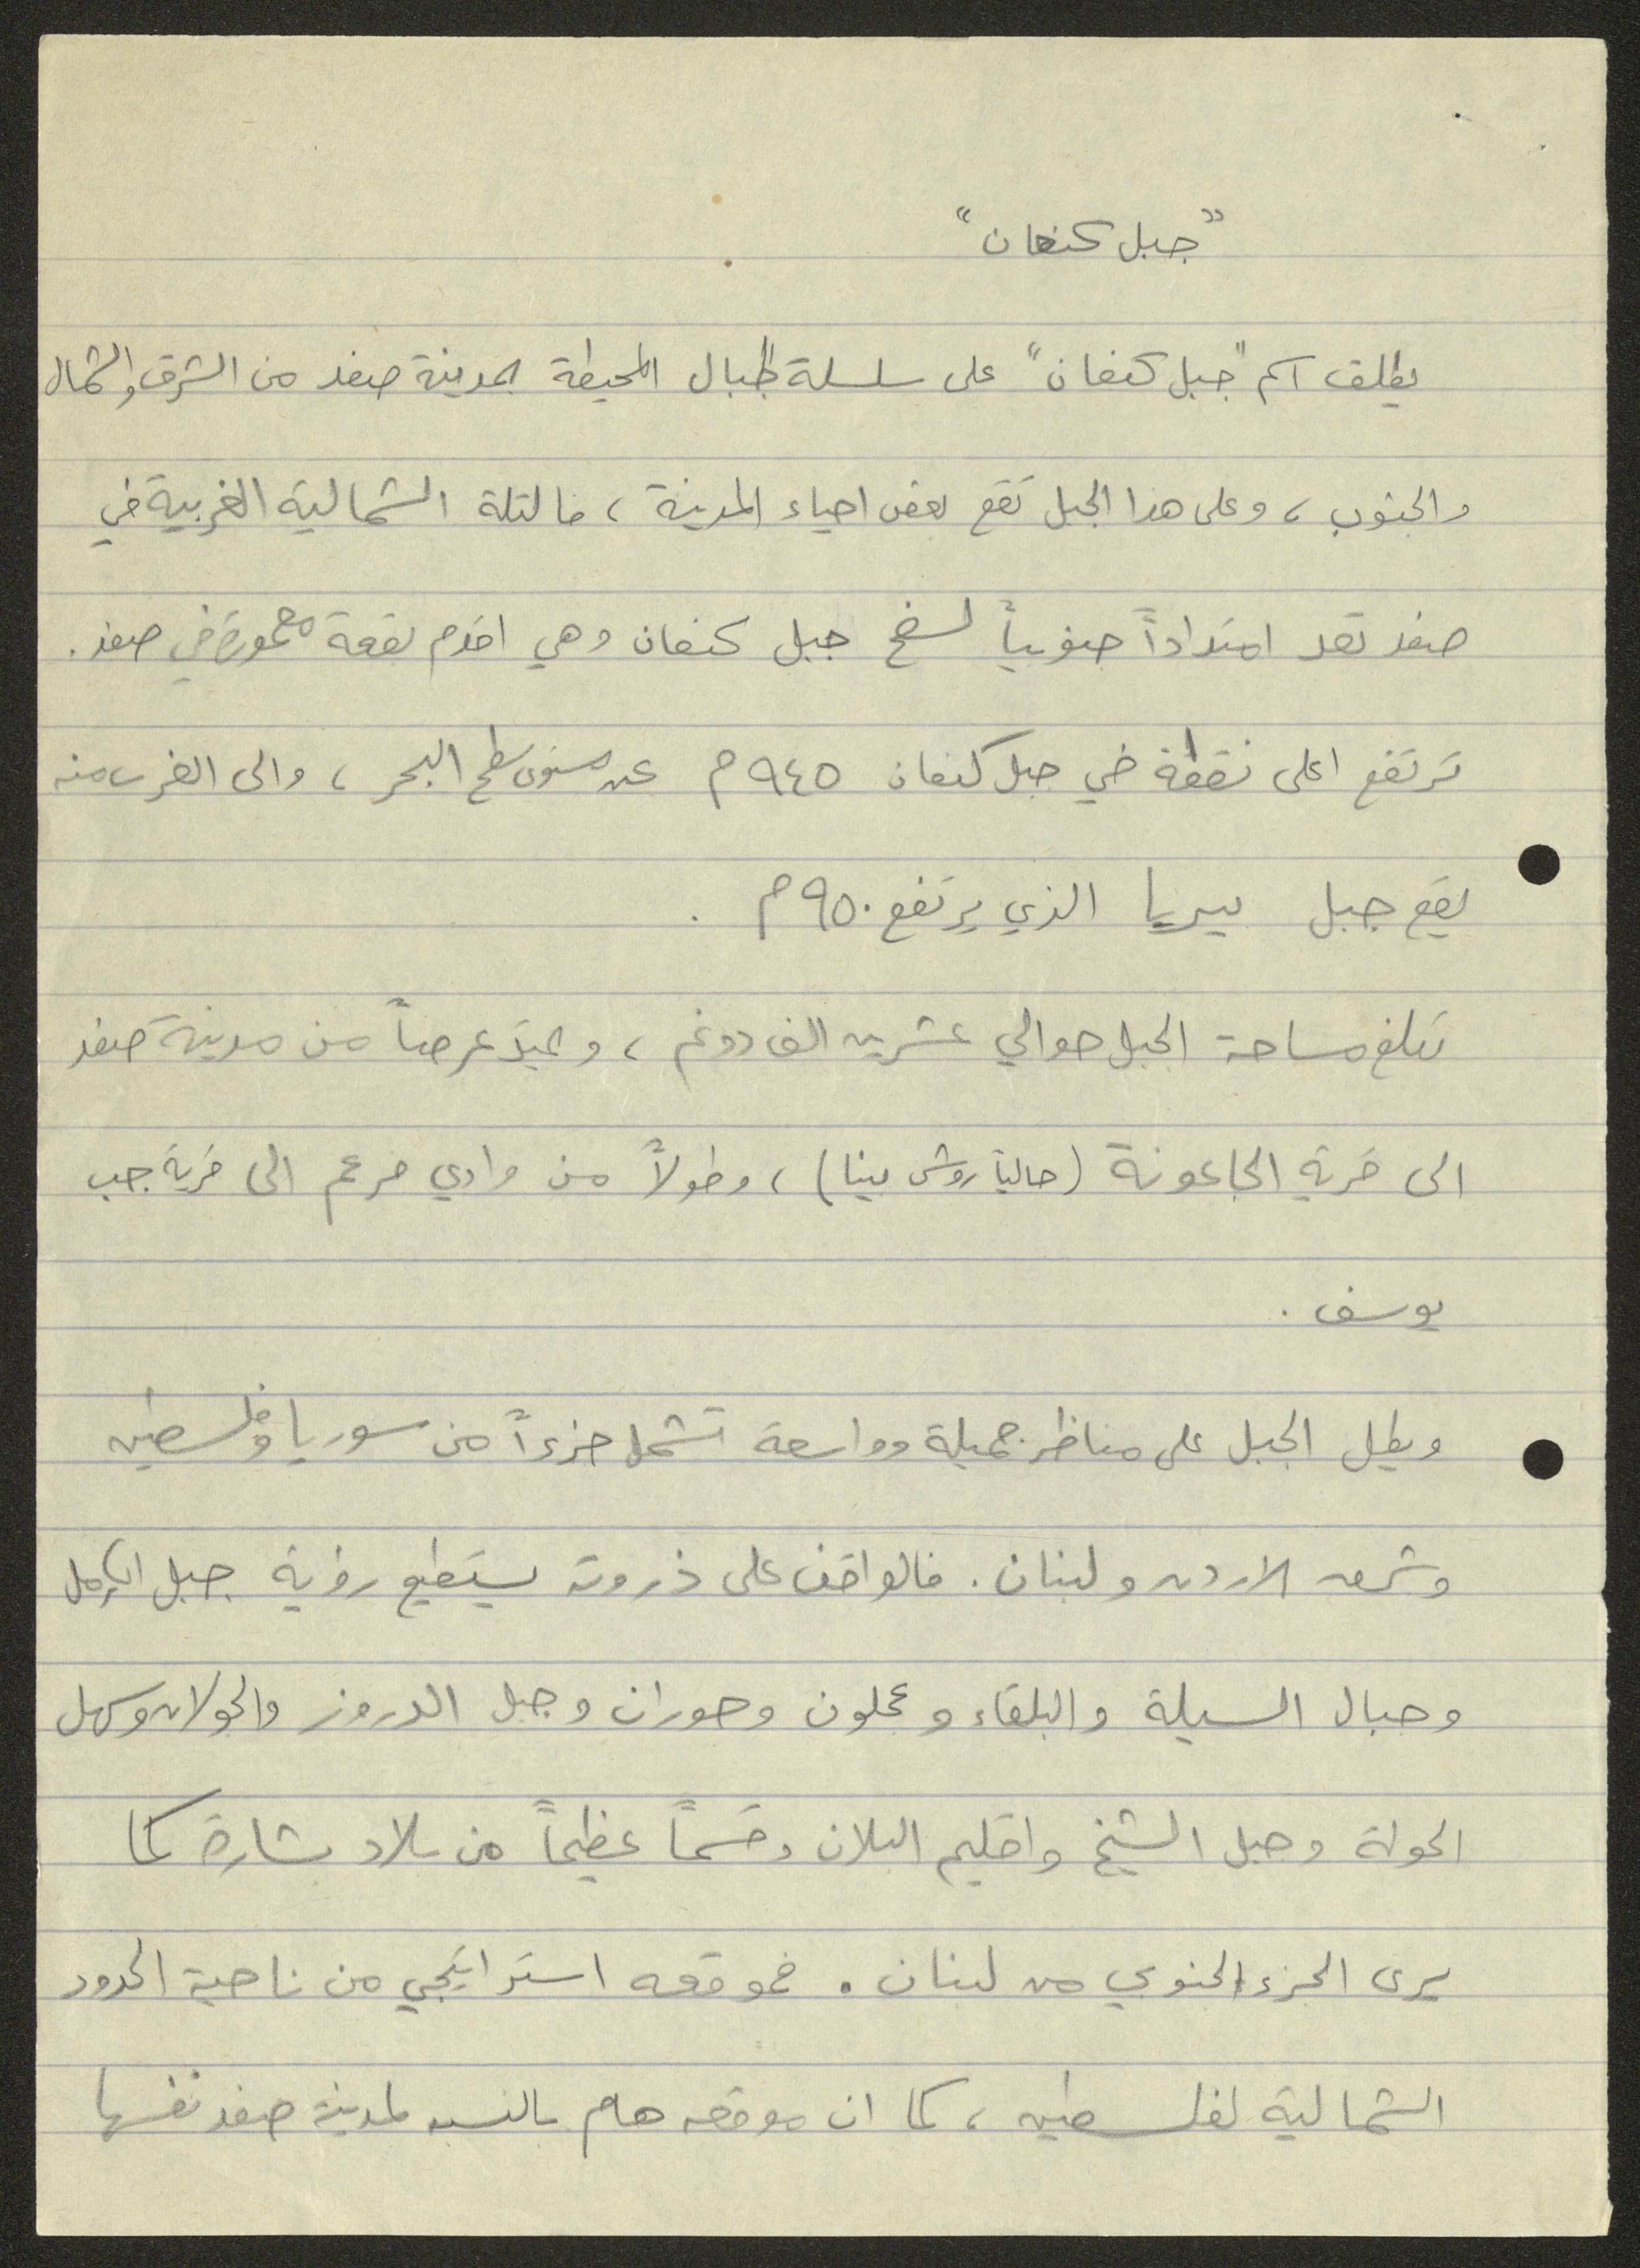 "جبل كنعان"
يطلق اسم "جبل كنعان" على سلسلة الجبال المحيطة بمدينة صفد من الشرق والشمال
والجنوب، وعلى هذا الجبل تقع بعض احياء المدينة، فالتلة الشمالية الغربية في
صفد تعد امتداداً جنوبياً لسفح جبل كنعان وهي اقدم بقعة معمورة في صفد.
ترتفع اعلى نقطة في جبل كنعان ٩٤٥ م عن مستوى سطح البحر، والى الغرب منه
يقع جبل بيريا الذي يرتفع ٩٥٠ م .
تبلغ مساحة الجبل حوالي عشرين الف دونم، ويمتد عرضاً من مدينة صفد
الى قرية الجاعونة (حالياً روش بينا)، وطولاً من وادي فرعم الى قرية جب
يوسف .
ويطل الجبل على مناظر جميلة وواسعة تشمل جزءاً من سوريا وفلسطين
وشرق الاردن ولبنان. فالواقف على ذروته يستطيع رؤية جبل الكرمل
وجبال السيلة والبلقاء وعجلون وحوران وجبل الدروز والجولان وسهل
الحولة وجبل الشيخ واقليم البلان وقسماً عظيماً من بلاد بشارة كما
يرى الجزء الجنوبي من لبنان. فموقعه استراتيجي من ناحية الحدود
الشمالية لفلسطين، كما ان موقعه هام بالنسبة لمدينة صفد نفسها